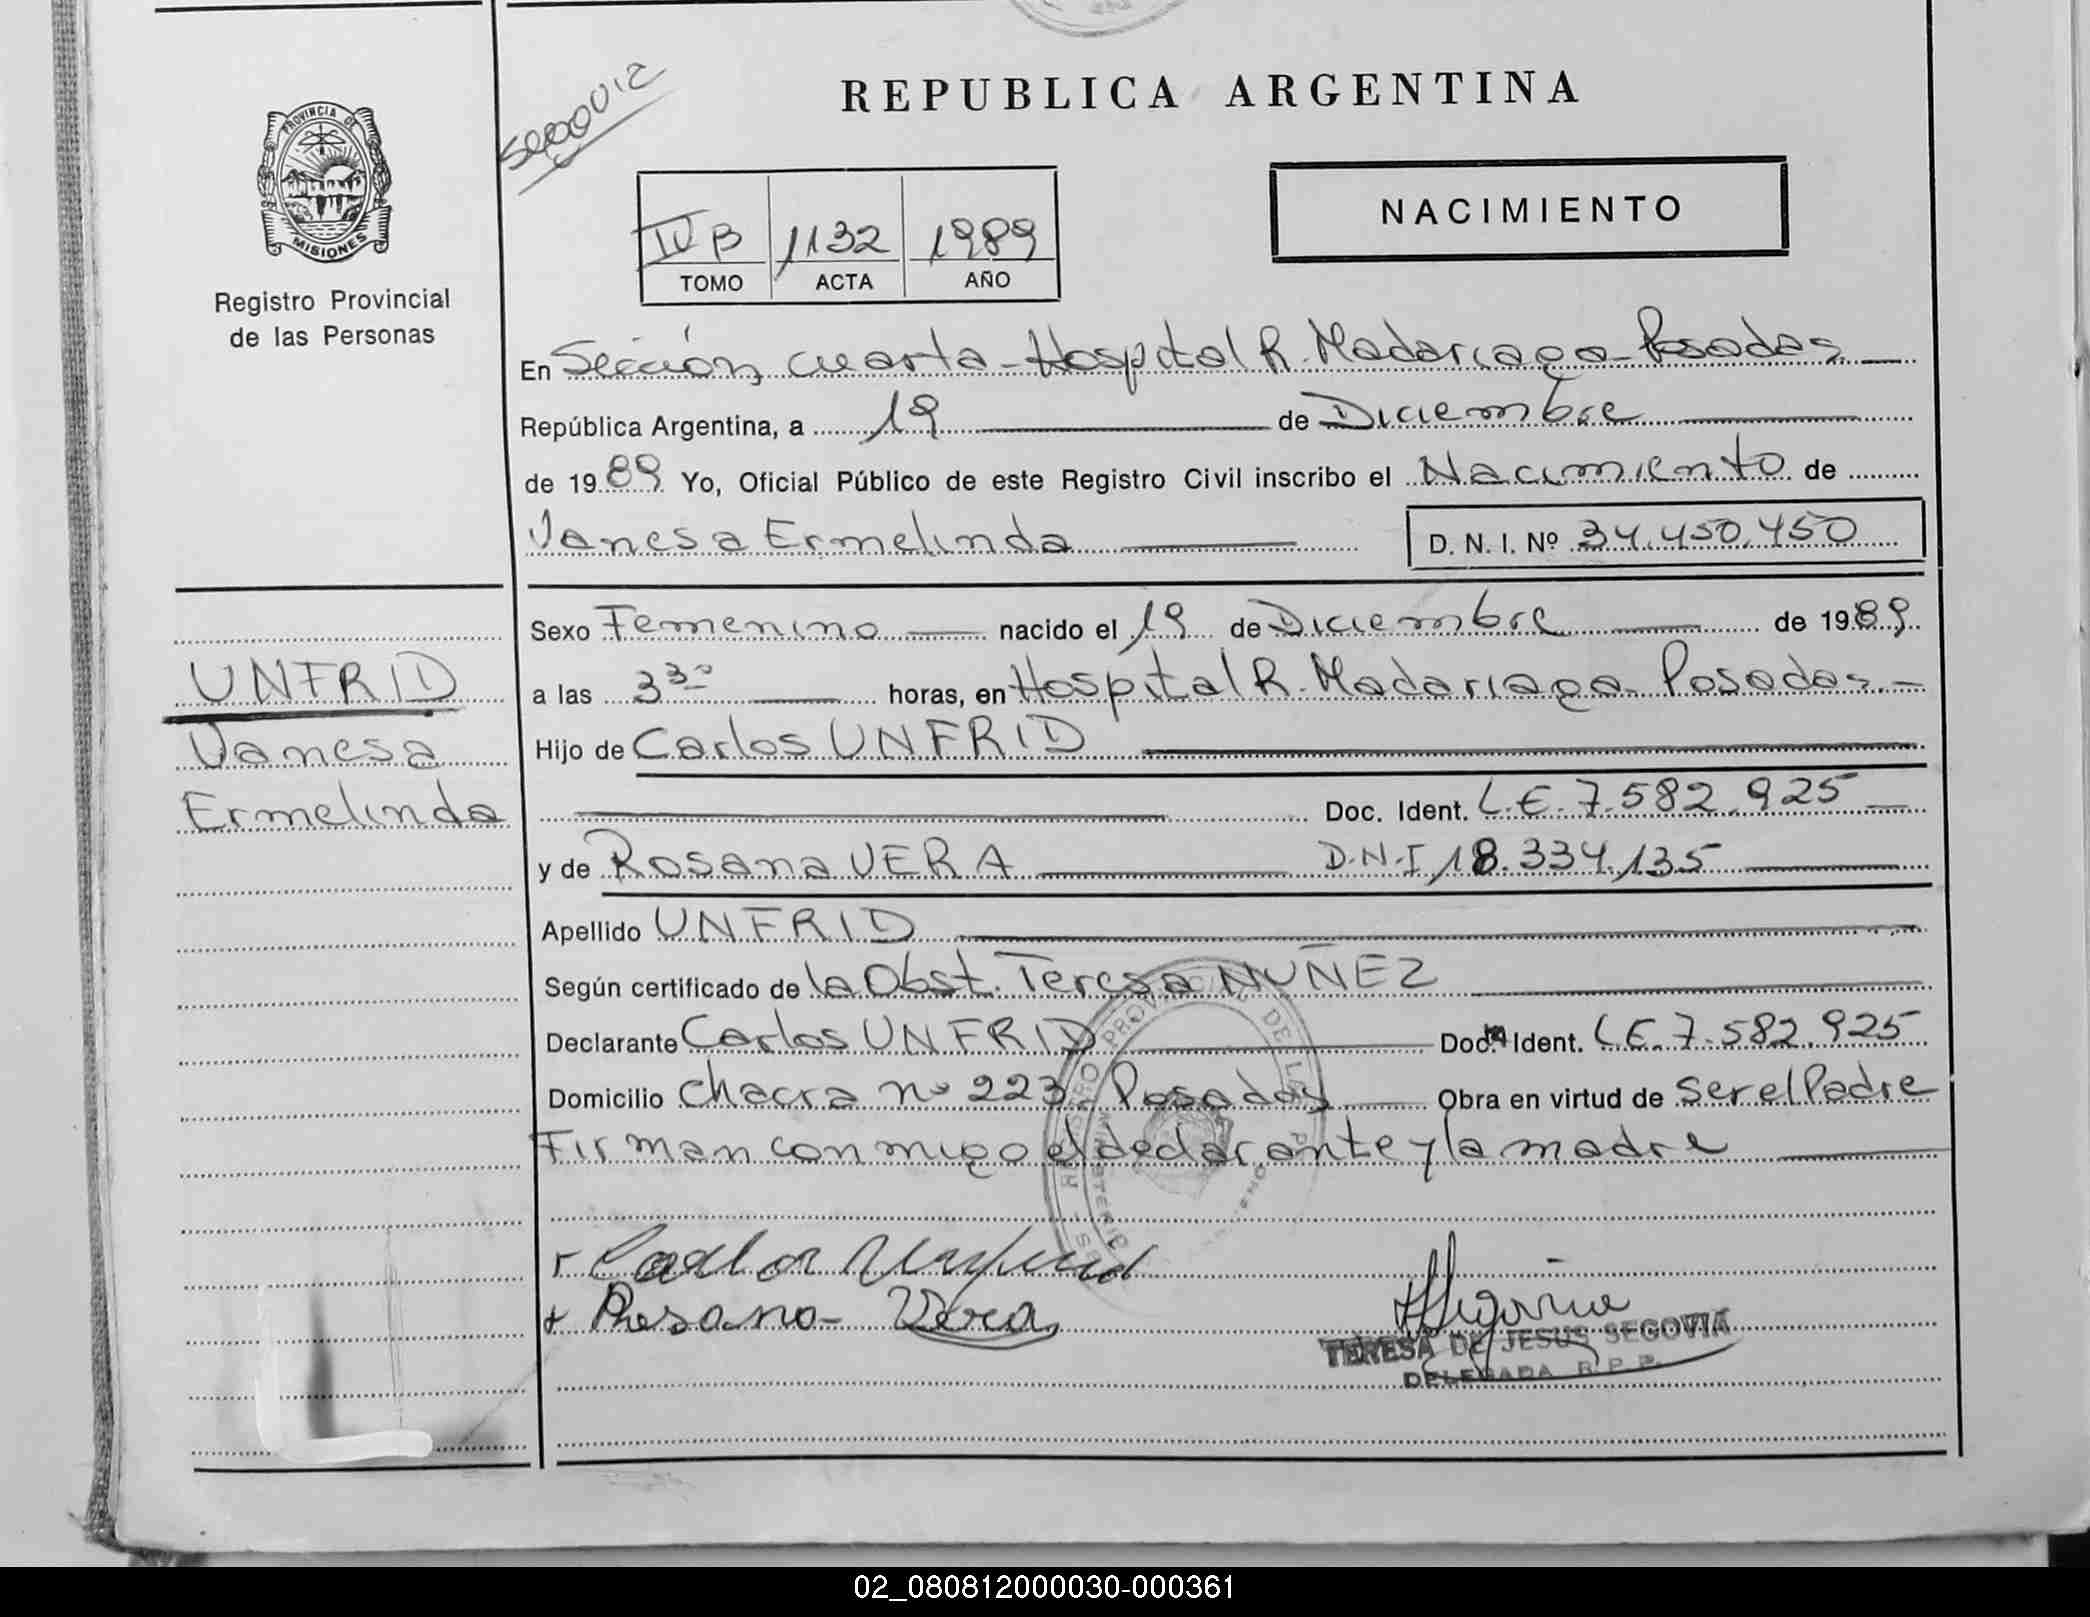 REPUBLICA ARGENTINA
PROVINCIA DE
MISIONES
Registro Provincial
de las Personas
IV B 1132 1989
TOMO ACTA AÑO
NACIMIENTO
En Sección cuarta - Hospital R. Madariaga - Posadas
República Argentina, a 19 de Diciembre
de 1989 Yo, Oficial Público de este Registro Civil inscribo el Nacimiento de
Vanesa Ermelinda D. N. I. Nº 34.450.450
Sexo Femenino nacido el 19 de Diciembre de 1989
a las 3 30 horas, en Hospital R. Madariaga - Posadas.-
Hijo de Carlos UNFRID
Doc. Ident. L.E. 7.582.925
y de Rosana VERA D.N.I 18.334.135
Apellido UNFRID
Según certificado de la Obst. Teresa NUÑEZ
Declarante Carlos UNFRID Doc. Ident. L.E. 7.582.925
Domicilio Chacra nº 223 Posadas Obra en virtud de Ser el Padre
Firman conmigo el declarante y la madre
UNFRID
Vanesa
Ermelinda
Carlos Unfrid
Rosana - Vera
Segovia
TERESA DE JESUS SEGOVIA
DELEGADA R.P.P.
02_080812000030-000361